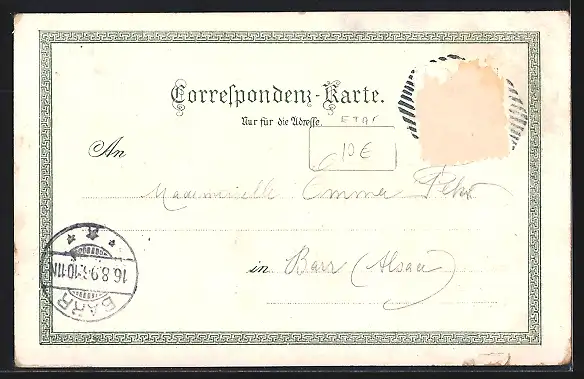 Correspondenz-Karte.
Nur für die Adresse.
ETAT
10 €
An
Mademoiselle Emma
in Barr (Alsace)
BARR
16.8.9
10-11N